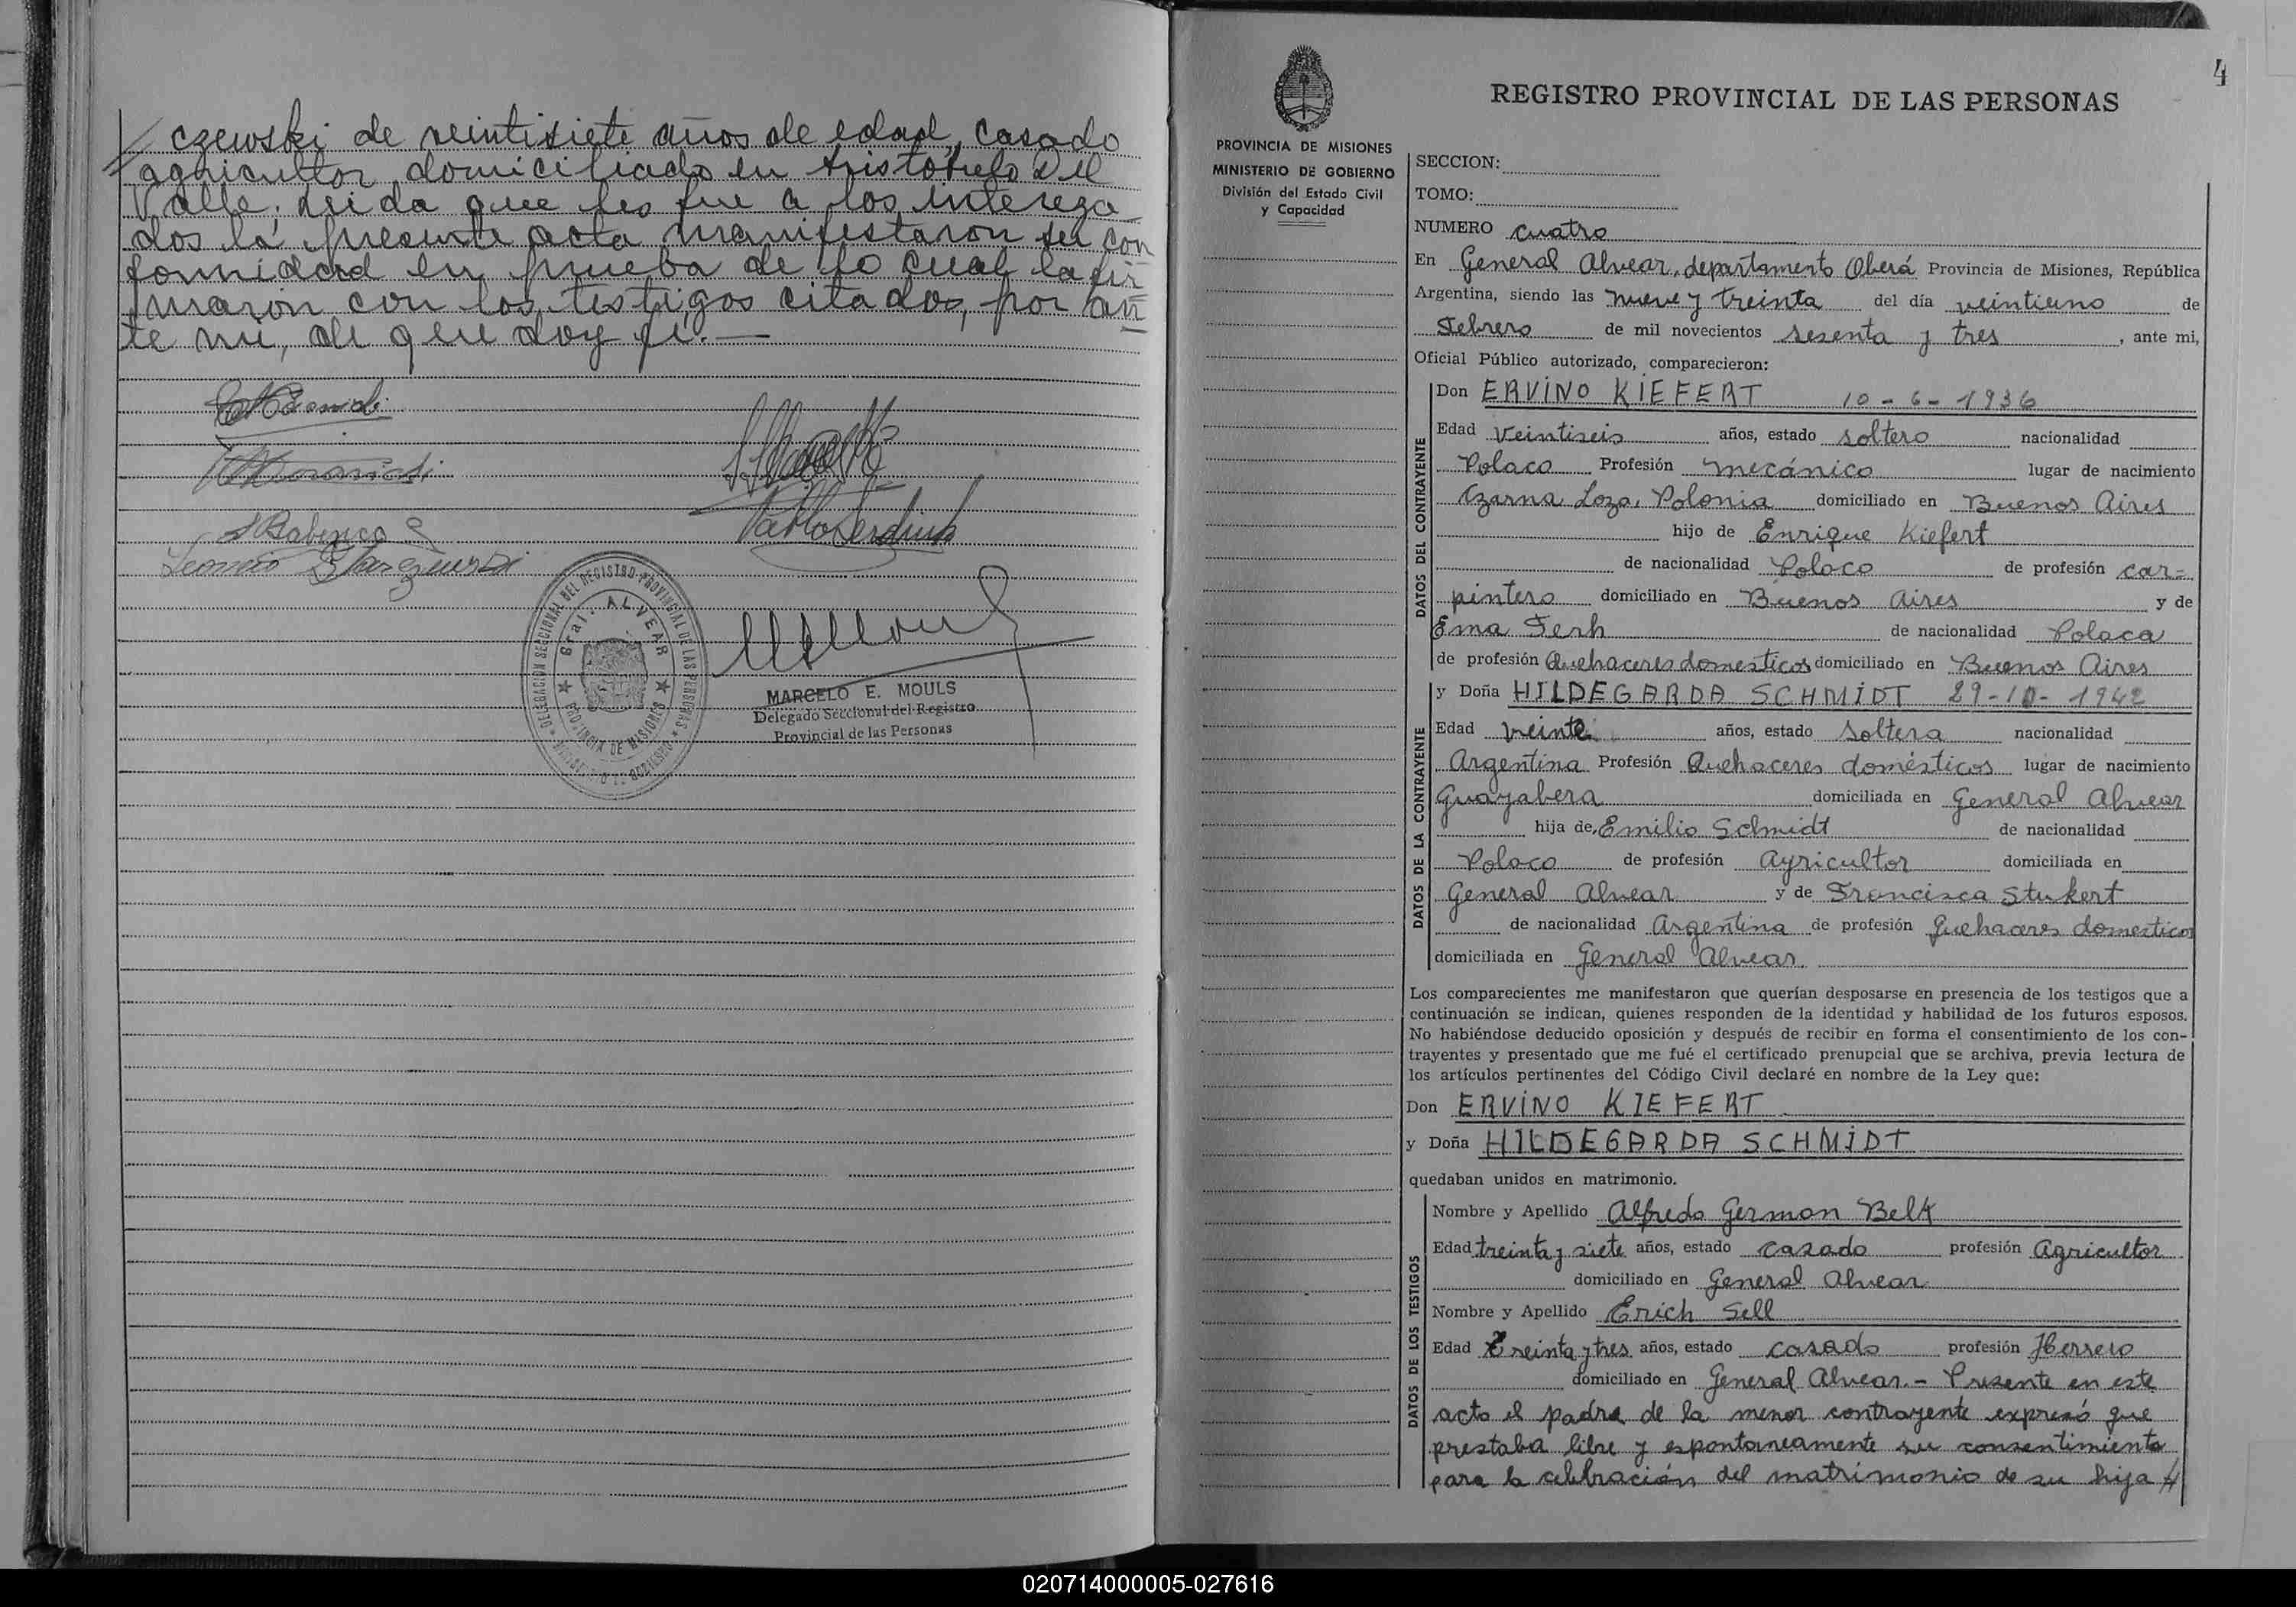 czewski de veintisiete años de edad, casado
agricultor domiciliado en Aristóbulo Del
Valle; leida que les fue a los interesa
dos la presente acta manifestaron su con
formidad en prueba de lo cual la fir
maron con los testigos citados, por an
te mi, de que doy fé.—
DELEGACION SECCIONAL DEL REGISTRO PROVINCIAL DE LAS PERSONAS
Gral. ALVEAR
PROVINCIA DE MISIONES
MARCELO E. MOULS
Delegado Seccional del Registro
Provincial de las Personas
4
REGISTRO PROVINCIAL DE LAS PERSONAS
PROVINCIA DE MISIONES
MINISTERIO DE GOBIERNO
División del Estado Civil
y Capacidad
SECCION:
TOMO:
NUMERO cuatro
En General Alvear, departamento Oberá Provincia de Misiones, República
Argentina, siendo las nueve y treinta del día veintiuno de
Febrero de mil novecientos sesenta y tres, ante mi,
Oficial Público autorizado, comparecieron:
DATOS DEL CONTRAYENTE
Don ERVINO KIEFERT 10-6-1936
Edad Veintiseis años, estado soltero nacionalidad
Polaco Profesión mecánico lugar de nacimiento
Czarna Loza, Polonia domiciliado en Buenos Aires
hijo de Enrique Kiefert
de nacionalidad Polaco de profesión car-
pintero domiciliado en Buenos Aires y de
Ema Ferh de nacionalidad Polaca
de profesión Quehaceres domesticos domiciliado en Buenos Aires
DATOS DE LA CONTRAYENTE
y Doña HILDEGARDA SCHMIDT 29-10-1942
Edad veinte años, estado soltera nacionalidad
Argentina Profesión Quehaceres domésticos lugar de nacimiento
Guayabera domiciliada en General Alvear
hija de Emilio Schmidt de nacionalidad
Polaco de profesión Agricultor domiciliada en
General Alvear y de Francisca Stukert
de nacionalidad Argentina de profesión Quehaceres domesticos
domiciliada en General Alvear
Los comparecientes me manifestaron que querían desposarse en presencia de los testigos que a
continuación se indican, quienes responden de la identidad y habilidad de los futuros esposos.
No habiéndose deducido oposición y después de recibir en forma el consentimiento de los con-
trayentes y presentado que me fué el certificado prenupcial que se archiva, previa lectura de
los artículos pertinentes del Código Civil declaré en nombre de la Ley que:
Don ERVINO KIEFERT
y Doña HILDEGARDA SCHMIDT
quedaban unidos en matrimonio.
DATOS DE LOS TESTIGOS
Nombre y Apellido Alfredo German Belk
Edad treinta y siete años, estado casado profesión Agricultor
domiciliado en General Alvear
Nombre y Apellido Erich Sell
Edad treinta y tres años, estado casado profesión Herrero
domiciliado en General Alvear.- Presente en este
acto el padre de la menor contrayente expresó que
prestaba libre y espontaneamente su consentimiento
para la celebración del matrimonio de su hija //
020714000005-027616